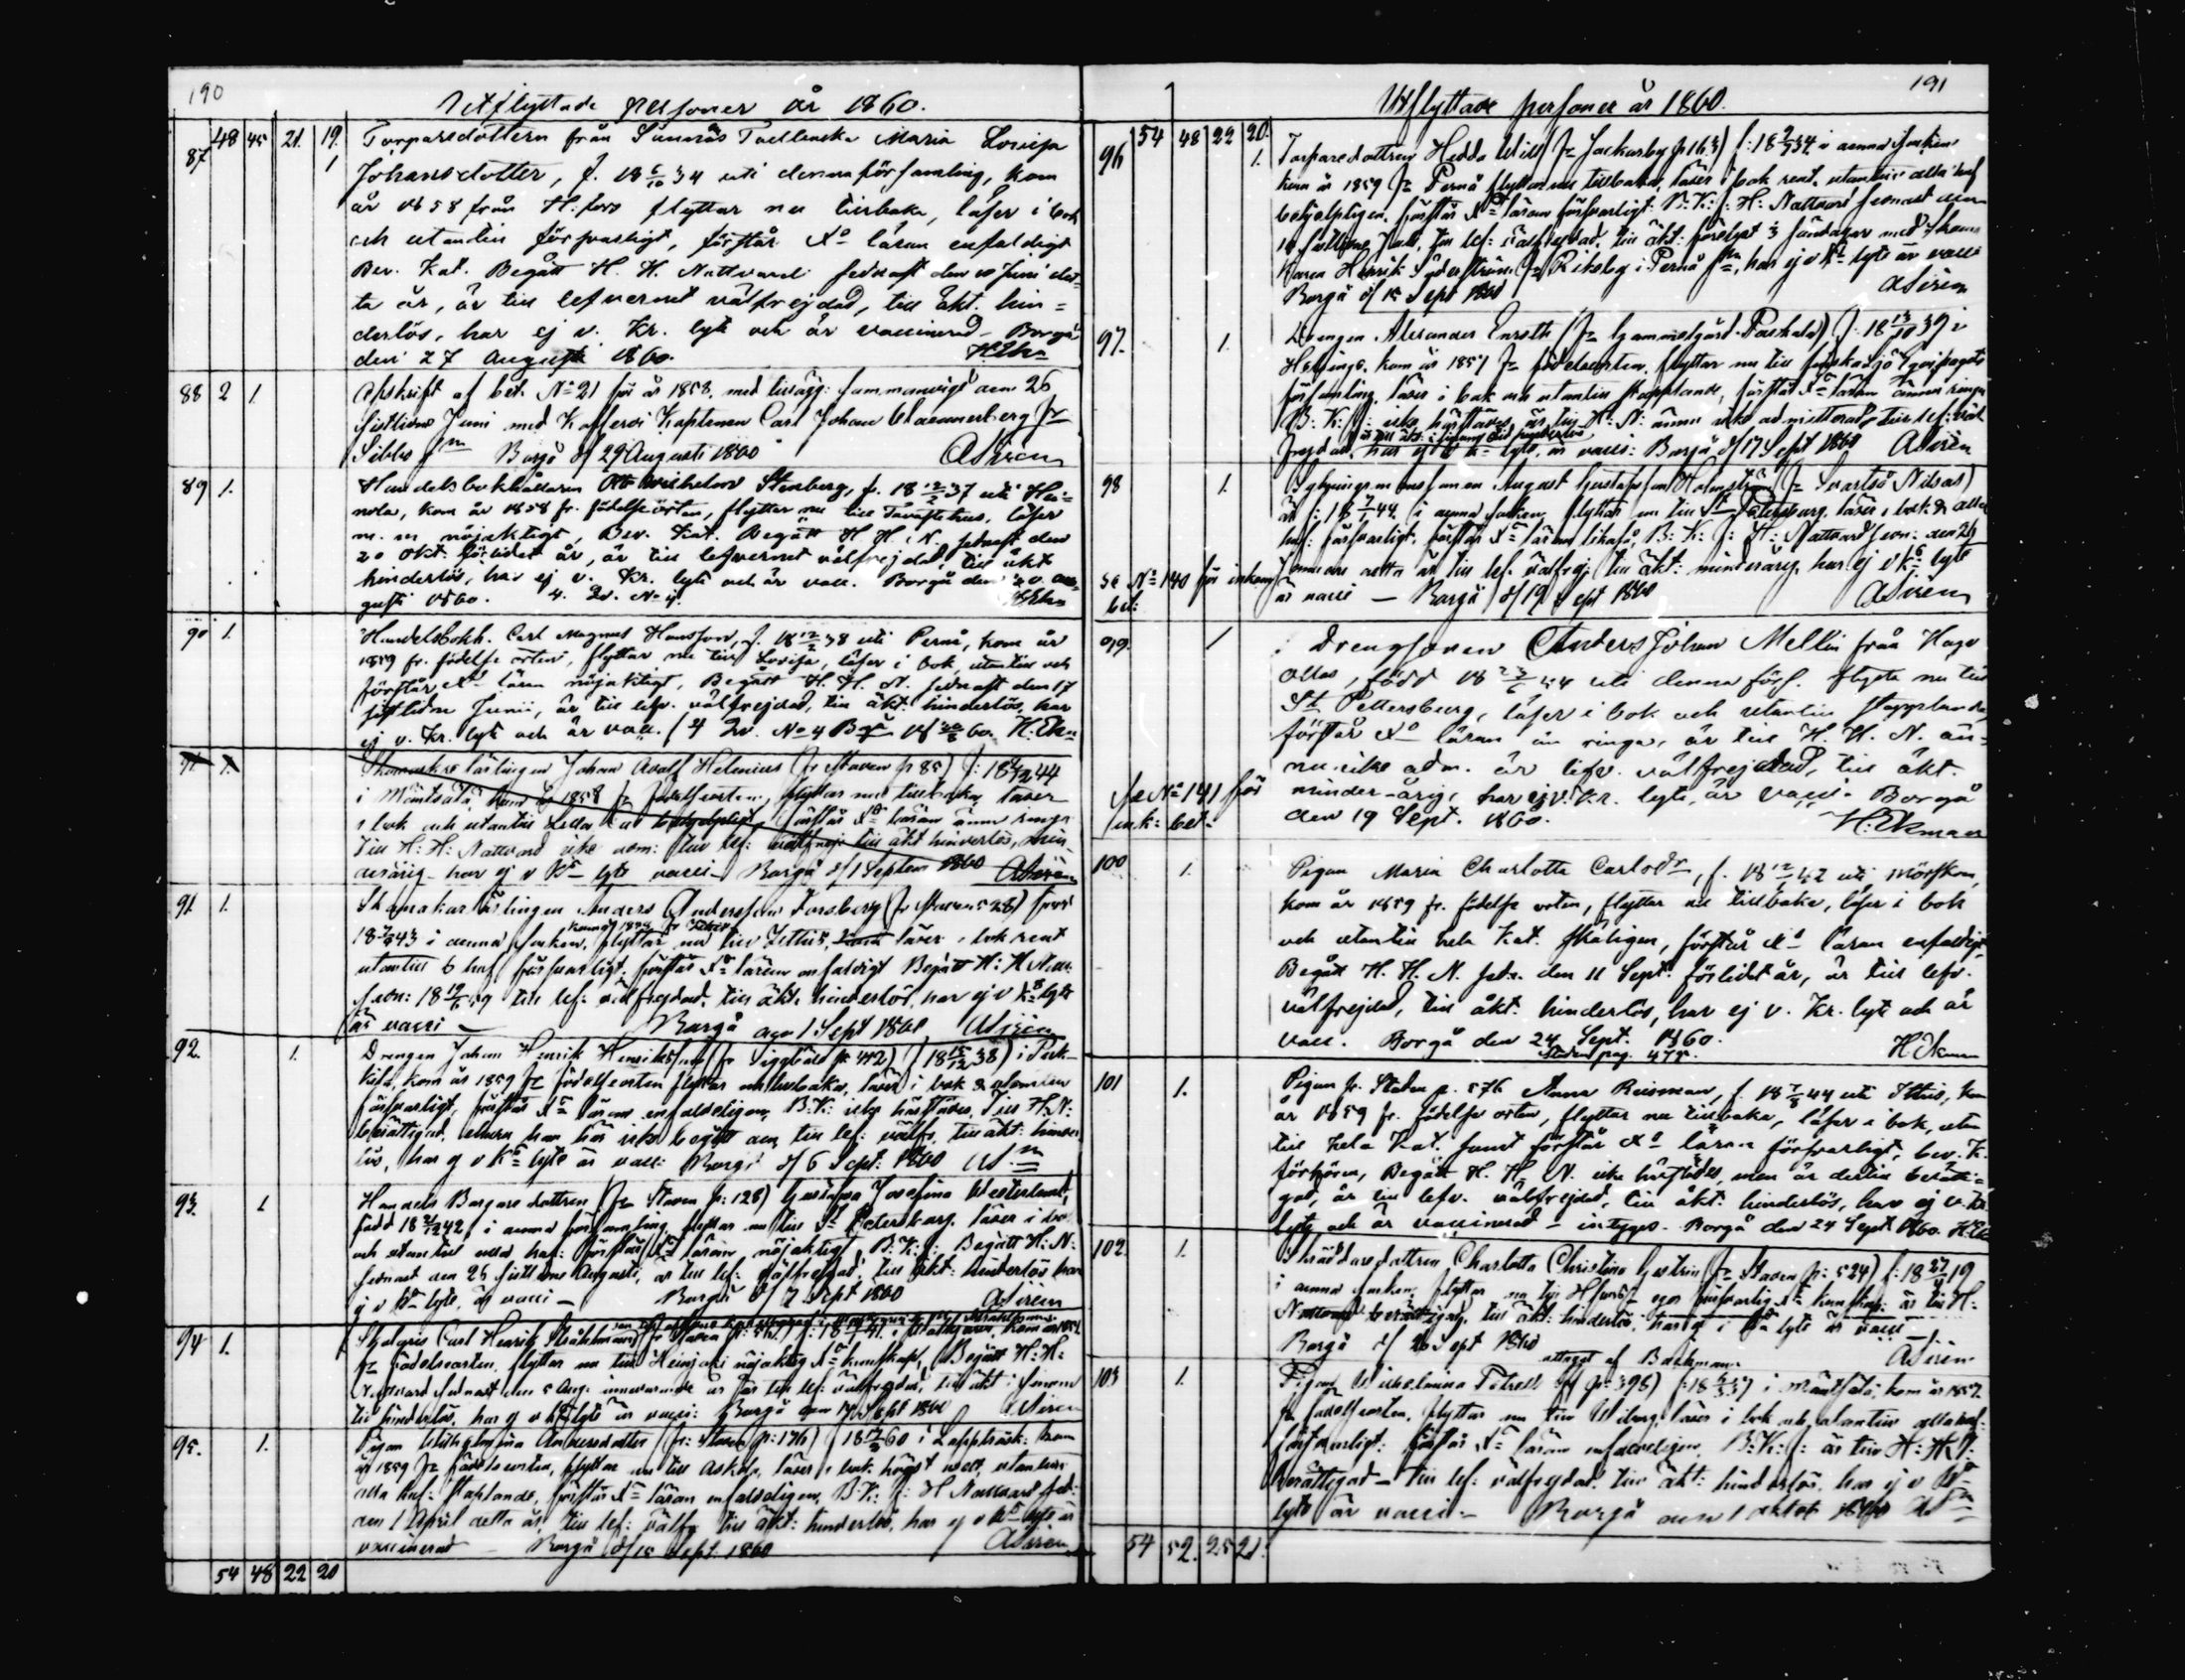 190
Utflyttade personer år 1860.
48 45 21. 19.
87 1
Torparedottern från Maria Lovisa
Johansdotter, f. 18 6/10 34 uti denna församling, kom
år 1858 från H:fors flyttar nu tillbaka, läser i bok
och utantill försvarligt, förstår Xs läran enfaldigt
Bev. Kat. Begått H. H. Nattvard sednast den 10 Juni det-
ta år, är till lefvernet välfrejdad, till äkt. hin=
derlös, har ej v. Kr. lyte och är vaccinerad - Borgå
den 27 Augusti 1860.
88 2 1.
Afskrift af bet. No 21 för år 1858, med tillägg: sammanvigd den 26
sistlidne Juni med Kofferdi Kaptenen Carl Johan
Sibbo Borgå d/ 29 Augusti 1860 ASirén
89 1.
Handelsbokhållaren Otto Wilhelm Stenberg, f. 18 12/2 37 uti Hei=
nola, kom år 1858 fr. födelseorten, flyttar nu till Tavastehus, läser
m. m nöjaktigt, Bev. Kat. Begått H H N. sednast den
20 Okt. förlidet år, är till lefvernet välfrejdad, till äkt
hinderlös, har ej v. Kr. lyte och är vacc. Borgå den 30 au=
gusti 1860. 4. Qv. No 4.
90 1.
Handelsbokh. Carl Magnus Hansson, f. 18 12/2 38 uti Perno, kom år
1859 fr. födelse orten, flyttar nu till Lovisa, läser i bok, utantill och
förstår Xs läran nöjaktigt, Begått H. H. N. sednast den 17
sistlidne Junii, är till lefv. välfrejdad, till äkt. hinderlös, har
ej v. Kr. lyte och är vacc. (4 Qv. No 4 H. Ekn
91 1.
Skomakare lärlingen Johan Adolf Helenius (fr Staden p 85) f: 18 44
i Mäntsälä, kom år 1858 fr födelseorten, flyttar nu tillbaka, läser
i bok och utantill förstår Xs läran ännu ringa
Till H: H: Nattvard icke adm: till lef: välfrejd till äkt hinderlös, min
derårig - har ej v Kr lyte vacci - Borgå d/1 Septem 1860 ASirén
91. 1.
Skomakarlärlingen Anders Andersson Forsberg (fr Staden 528) född
18 43 i denna socken, flyttar nu till läser i bok rent
utantill 6 huf: försvarligt, förstår Xs läran enfaldigt Begått H: H Natt.
sedn: 18 59 till lef: välfrejdad, till äkt. hinderlös, har ej v Kr lyte
är vacci - Borgå den 1 Sept 1860 ASirén
92. 1.
Drengen Johan Henrik Henriksson (fr p 412) f 18 15/12 38) i Puk-
kila, kom år 1859 fr födelseorten flyttar nu tillbaka, läser i bok & utantill
försvarligt, förstår Xs läran enfaldeligen, B: K: icke härstädes, Till H. N:
berättigad, ehuru han här icke begått den, till lef: välfr. till äkt: hinder
lös, har ej v Kr lyte är vacc: Borgå d/ 6 Sept: 1860 ASn
93. 1
Handels Borgaredottren (fr Staden p: 128) Gustafva Josefina Westerlund,
född 18 42 i denna församling, flyttar nu till St Petersburg. läser i bok
och utantill alla huf: förstår Xs läran nöjaktigt, B: K: f: Begått H: N:
sednast den 26 sistlidne Augusti, är till lef: välfrejdad, till äkt: hinderlös har
ej v Kr lyte, är vacci - Borgå d/ 7 Sept 1860 ASirén
94 1.
Carl Henrik
fr födelseorten, flyttar nu till Heinjoki nöjaktig Xs kunskap, Begått H: H:
Nattvard sednast den 5 Aug. innevarande år är till lef: välfrejdad, till äkt i
till hinderlös, har ej v Kr lyte är vacci: Borgå den 14 Sept 1860 ASirén
95. 1.
Pigan Wilhelmina Andersdotter (fr: Staden p: 176) f 18 i Lappträsk. kom
år 1859 fr födelseorten, flyttar nu till Askola, läser i bok högst matt, utantill
alla huf: staplande, förstår Xs läran enfaldeligen, B: K: f: H Nattvard sed:
den 1 April detta år, till lef: välfr till äkt: hinderlös, har ej v Kr lyte är
vaccinerad - Borgå d/15 Sept. 1860 ASirén
54 48 22 20
191
Utflyttade personer år 1860.
54 48 22 20.
96 1.
Torparedottren Hedda Will (fr Jackarby p 163) f: 18 34 i denna socken
kom år 1859 fr Pernå flyttar nu tillbaka, läser i bok rent, utantill alla huf
behjelpligen, förstår Xs läran försvarligt. B: K: f: H: Nattvard sednast den
sistlidne Juli, till lef: välfrejdad, till äkt: förelyst 3 söndagar med
Karen Henrik Söderström fr Rikeby i Pernå har ej v Kr lyte är vacci
Borgå d/ 15 Sept 1860 ASirén
97. 1.
Drengen Alexander Enroth (fr Gammelgård f: 18 13/10 39 i
Helsinge, kom år 1857 fr födelseorten, flyttar nu till
församling, läser i bok och utantill stapplande, förstår Xs läran ännu ringa
B: K: f: icke härstädes, är till H: N: ännu icke admitterad, till lef: väl
frejdad. har ej v Kr lyte, är vacci: Borgå d/17 Sept 1860 ASirén
98 1.
August Gustafsson Holmström (fr Svartsö Nissas)
är f: 18 44 i denna socken, flyttar nu till St Petersburg, läser i bok & alla
huf: försvarligt, förstår Xs läran likaså, B: K: f: H: Nattvard sedn: den 26
detta år till lef. välfrej: till äkt: minderårig, har ej v Kr lyte
är vacci - Borgå d/ 19 Sept 1860 ASirén
se No 140 för inkomne
bet:
99. 1
Drengsonen Anders Johan Mellin från Haga
Ollas, född 18 44 uti denna förs. flytta nu till
St Pettersburg, läser i bok och utantill stapplande,
förstår Xs läran än ringa, är till H. H. N. än=
nu icke adm. är lefv. välfrejdad, till äkt.
minder-årig, har ej v. Kr. lyte, är vacci. Borgå
den 19 Sept. 1860. H: Ekman
se No 141 för
ink: bet:
100 1.
Pigan Maria Charlotta Carlsdr, f. 18 12/1 42 uti Mörskom,
kom år 1859 fr. födelse orten, flyttar nu tillbaka, läser i bok
och utantill hela Kat. skäligen, förstår Xs läran enfaldigt,
Begått H. H. N. sedn. den 11 Sept. förlidet år, är till lefv.
välfrejdad, till äkt. hinderlös, har ej v. Kr. lyte och är
vacc. Borgå den 24 Sept. 1860. H Ekman
Staden pag. 475.
101 1.
Pigan fr. Staden p. 576 Anna Reisman, f. 18 44 uti Ithis, kom
år 1859 fr. födelse orten, flyttar nu tillbaka, läser i bok, utan
till hela Kat. samt förstår Xs läran försvarligt, bev. K.
förhören, Begått H. H. N. icke härstädes, men är dertill berätti=
gad, är till lefv. välfrejdad, till äkt. hinderlös, har ej v. Kr.
lyte och är vaccinerad - intygas. Borgå den 24 Sept 1860. H. Ek
102. 1.
Skräddaredottren Charlotta Christina (fr Staden p: 524) f: 18 27 19
i denna socken, flyttar nu till H:fors eger försvarlig Xs kunskap: är till H:
Nattvard berättigad, till äkt: hinderlös, har ej v Kr lyte är vacci -
Borgå d/ 26 Sept 1860 ASirén
uttaget af Backman
103 1.
Pigan Wilhelmina (fr p: 398) f: 18 37 i Mäntsälä: kom år 1857
fr födelseorten, flyttar nu till Wiborg, läser i bok och utantill alla huf:
försvarligt: förstår Xs läran enfaldeligen, B: K: f: är till H: H: N:
berättigad - till lef: välfrejdad. till äkt: hinderlös, har ej v Kr
lyte är vacci - Borgå den 1 oktob 1860 ASn
54 52. 25 21.